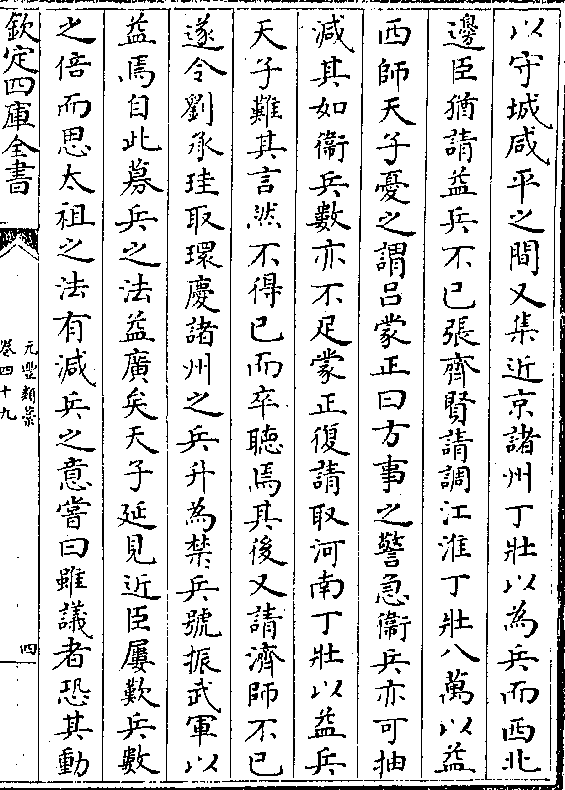 以守城咸平之間又集近京諸州丁壯以為兵而西北
邊臣猶請益兵不已張齊賢請調江淮丁壯八萬以益
西師天子憂之謂呂蒙正曰方事之警急衞兵亦可抽
減其如衞兵數亦不足蒙正復請取河南丁壯以益兵
天子難其言然不得已而卒聽焉其後又請濟師不已
遂令劉承珪取環慶諸州之兵升為禁兵號振武軍以
益焉自此募兵之法益廣矣天子延見近臣屢歎兵數
之倍而思太祖之法有減兵之意嘗曰雖議者恐其動
欽定四庫全書
元豐類藁
卷四十九
四